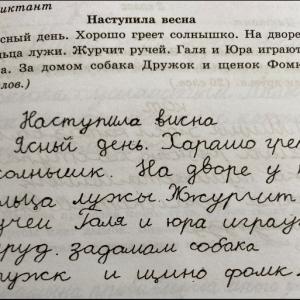 диктант
Наступила весна
сный день. Хорошо греет солнышко. На дворе
ьца лужи. Журчит ручей. Галя и Юра играют
а. За домом собака Дружок и щенок Фом
лов.)
Наступила висна
Ясный день. Харашо грe
солнышик. На дворе у
льца лужы. Жжурчит
учеи Галя и юра играу
руд. задамам собака
ружк и щино фомк